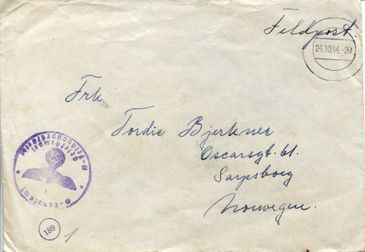 Feldpost.
24.10.44.-20
Frk.
Tordis Bjerknes
Oscarsgt. 61.
Sarpsborg
Norwegen.
189